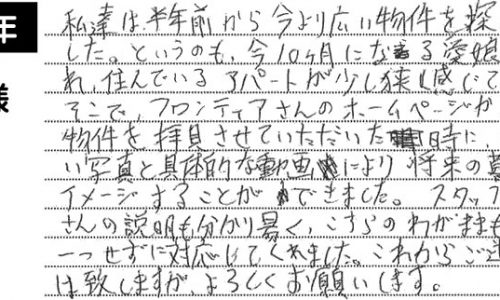 年
様
私達は、半年前から今より広い物件を探
した。というのも、今10ヶ月になる愛娘
れ、住んでいるアパートが少し狭く感じて
そこで、フロンティアさんのホームページか
物件を拝見させていただいた時に、
い写真と具体的な動画により将来の暮
イメージすることができました。スタッフ
さんの説明も分かり易く、こちらのわがままも
一つせずに対応してくれました。これからご迷
は致しますが、よろしくお願いします。